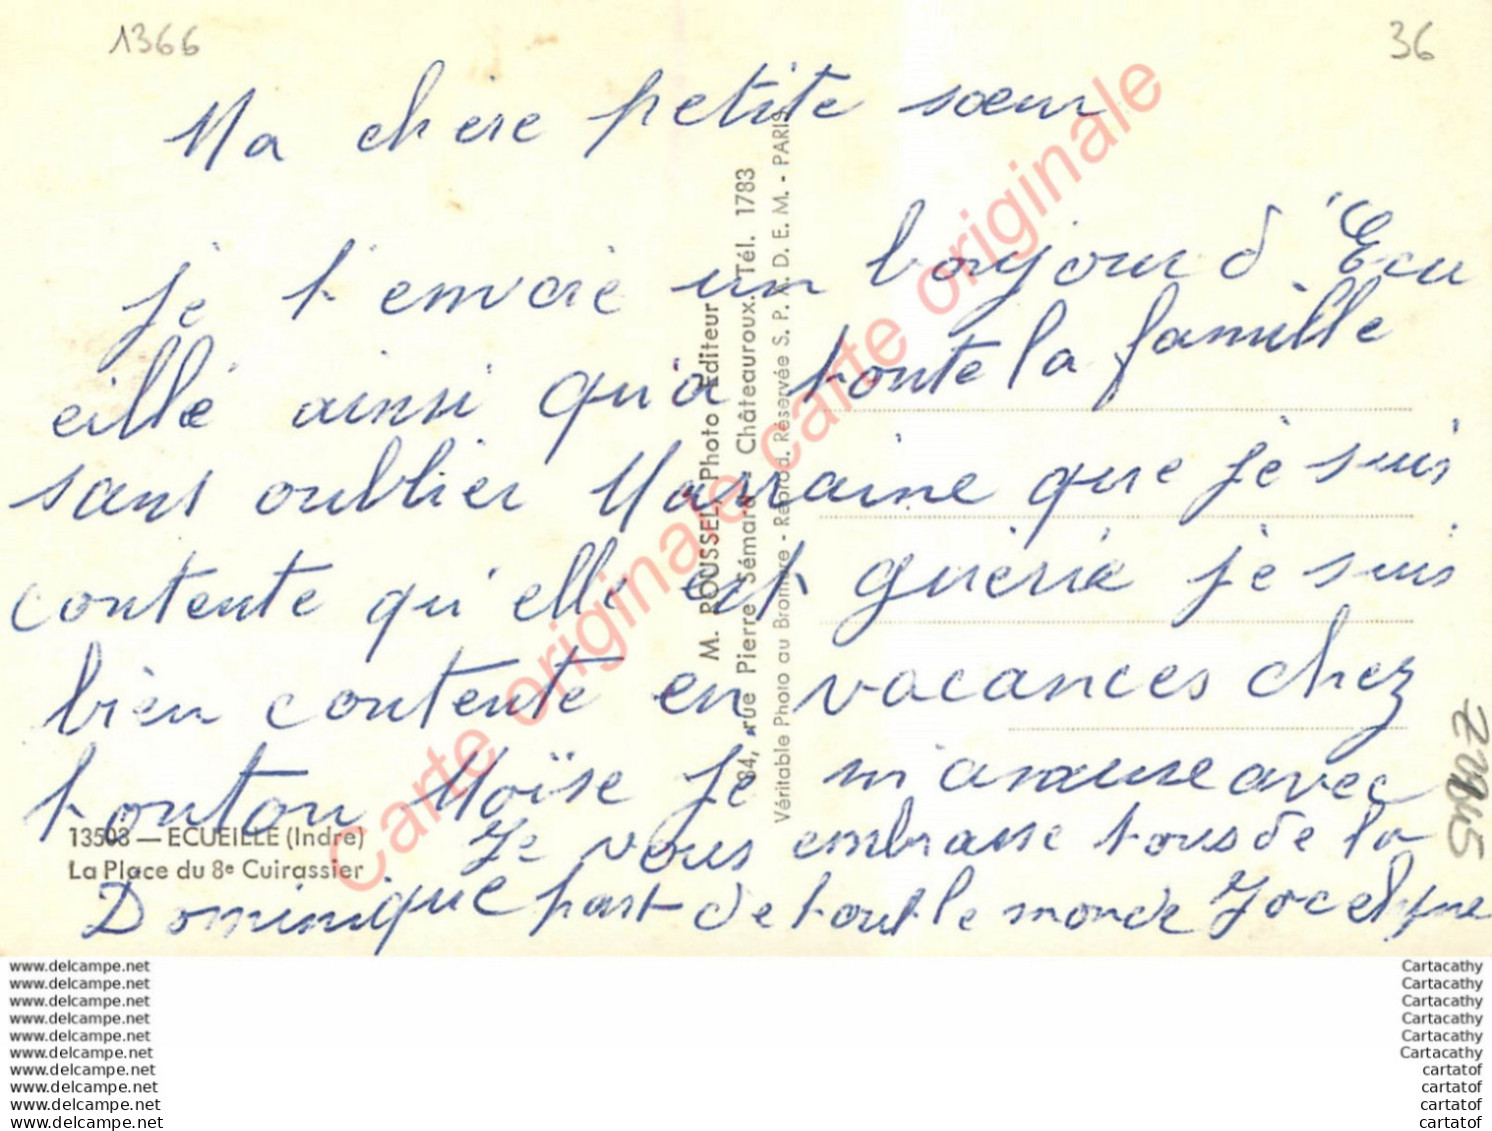 1366
36
Ma chère petite sœur
je t'envoie un bonjour d'Ecu
eillé ainsi qu'a toute la famille
sans oublier Marraine que je suis
contente qu'elle est guérie je suis
bien contente en vacances chez
tonton Moïse je m'amuse avec
Dominique
Je vous embrasse tous de la
part de tout le monde Jocelyne
13503 — ECUEILLE (Indre)
La Place du 8e Cuirassier
M. ROUSSEL Photo Editeur
84, rue Pierre Sémard - Châteauroux. Tél. 1783
Véritable Photo au Bromure - Reprod. Réservée S. P. A. D. E. M. - PARIS
Carte originale carte originale carte originale
www.delcampe.net
www.delcampe.net
www.delcampe.net
www.delcampe.net
www.delcampe.net
www.delcampe.net
www.delcampe.net
www.delcampe.net
www.delcampe.net
www.delcampe.net
Cartacathy
Cartacathy
Cartacathy
Cartacathy
Cartacathy
Cartacathy
cartatof
cartatof
cartatof
cartatof